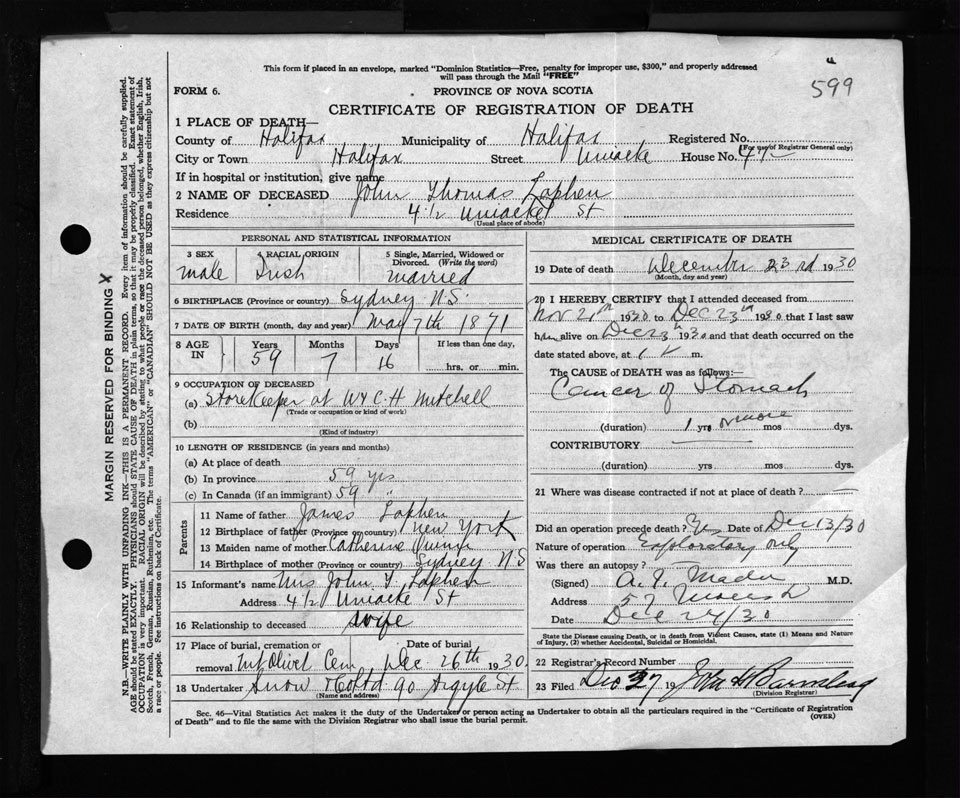 This form if placed in an envelope, marked "Dominion Statistics—Free, penalty for improper use, $300," and properly addressed
will pass through the Mail "FREE"
599
FORM 6.
PROVINCE OF NOVA SCOTIA
CERTIFICATE OF REGISTRATION OF DEATH
1 PLACE OF DEATH—
County of Halifax Municipality of Halifax Registered No.
(For use of Registrar General only)
City or Town Halifax Street Uniacke House No.
If in hospital or institution, give name
2 NAME OF DECEASED John Thomas Laphen
Residence 4 1/2 Uniacke St
(Usual place of abode)
PERSONAL AND STATISTICAL INFORMATION
3 SEX male
RACIAL ORIGIN Irish
5 Single, Married, Widowed or Divorced. (Write the word) married
6 BIRTHPLACE (Province or country) Sydney N.S.
7 DATE OF BIRTH (month, day and year) May 7th 1871
8 AGE IN Years Months Days If less than one day,
59 7 16 hrs. or min.
9 OCCUPATION OF DECEASED
(a) Storekeeper at W & C. H Mitchell
(Trade or occupation or kind of work)
(b)
(Kind of industry)
10 LENGTH OF RESIDENCE (in years and months)
(a) At place of death
(b) In province 59 yrs
(c) In Canada (if an immigrant) 59 "
Parents
11 Name of father James Laphen
12 Birthplace of father (Province or country) New York
13 Maiden name of mother Catherine
14 Birthplace of mother (Province or country) Sydney N S
15 Informant's name Mrs John T. Laphen
Address 4 1/2 Uniacke St
16 Relationship to deceased wife
17 Place of burial, cremation or removal Mt Olivet Cem Date of burial Dec 26th 1930
18 Undertaker Snow & Co Ltd 90 Argyle St
(Name and address)
MEDICAL CERTIFICATE OF DEATH
19 Date of death December 23rd 1930
(Month, day and year)
20 I HEREBY CERTIFY that I attended deceased from
Nov 1930 to Dec 23th 1930 that I last saw
him alive on Dec 23th 1930 and that death occurred on the
date stated above, at m.
The CAUSE of DEATH was as follows:—
Cancer of Stomach
(duration) 1 yrs or more mos dys.
CONTRIBUTORY
(duration) yrs mos dys.
21 Where was disease contracted if not at place of death?
Did an operation precede death? Yes Date of Dec 13/30
Nature of operation Exploratory only
Was there an autopsy?
(Signed) M.D.
Address 57 Morris
Date Dec 24/30
State the Disease causing Death, or in death from Violent Causes, state (1) Means and Nature
of Injury, (2) whether Accidental, Suicidal or Homicidal.
22 Registrar's Record Number
23 Filed Dec 27 19
(Division Registrar)
Sec. 46—Vital Statistics Act makes it the duty of the Undertaker or person acting as Undertaker to obtain all the particulars required in the "Certificate of Registration
of Death" and to file the same with the Division Registrar who shall issue the burial permit.
(OVER)
MARGIN RESERVED FOR BINDING
N.B.—WRITE PLAINLY WITH UNFADING INK—THIS IS A PERMANENT RECORD. Every item of information should be carefully supplied.
AGE should be stated EXACTLY. PHYSICIANS should STATE CAUSE OF DEATH in plain terms, so that it may be properly classified. Exact statement of
OCCUPATION is very important. RACIAL ORIGIN will be described by stating to what people or race the deceased person belonged, whether English, Irish,
Scotch, French, German, Russian, Ruthenian, etc. The terms "AMERICAN" or "CANADIAN" SHOULD NOT BE USED as they express citizenship but not
a race or people. See instructions on back of Certificate.